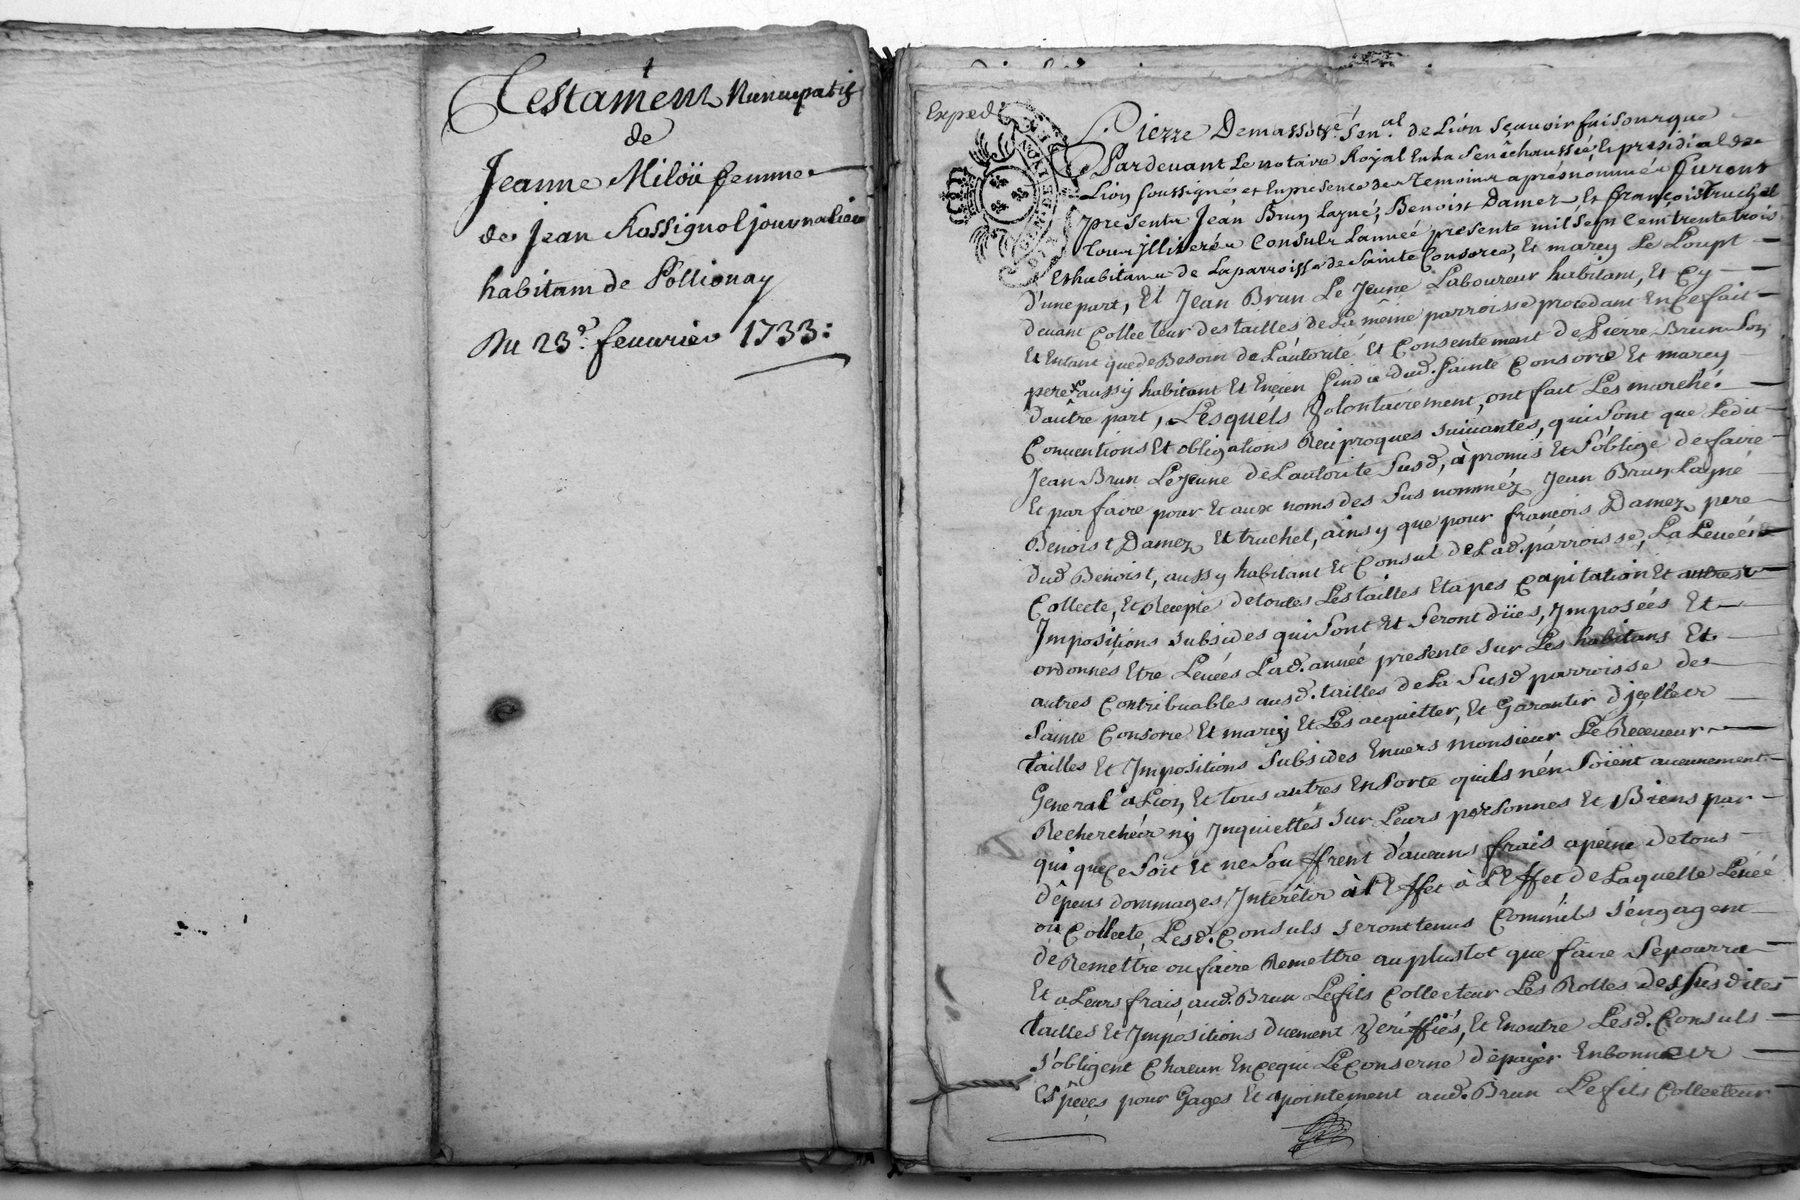 Testament Nuncupatif
de
Jeanne Miloü femme
de Jean Rossignol journalier
habitam de Pollionay
Du 23e. feuurier 1733:
Exped
GEN. DE LION
Pierre Demasso Sen.al de Lion Sçauoir faisons que
Pardeuant Le notaire Royal En La Senêchaussée Et presidial de
Lion Soussigné et En presence des Temoins aprés nommés furent
presents Jean Brun Layné, Benoist Damez Et françois truchel
tous jllitérés Consuls Lanneé presente mil Sept Cent trente trois
Et habitans de La parroisse de Sainte Consorce, Et marcy Le Loup
d'une part, Et Jean Brun Le Jeune Laboureur habitant, Et Cy
deuant Collecteur des tailles de La même parroisse procedant En Ce fait
Et Entant que de Besoin de L'autorité Et Consentement de Pierre Brun Son
pere aussy habitant Et Encien Sindic dud. Sainte Consorce Et marcy
d'autre part, Lesquels Volontairement, ont fait Les marché
Conuentions Et obligations Reciproques Suiuantes, qui Sont que Ledit
Jean Brun Le Jeune de L'autorité Susd, à promis Et S'oblige de faire
Et par faire pour Et aux noms des Sus nommez Jean Brun Layné
Benoist Damez Et truchel, ainsy que pour françois Damez pere
dud Benoist, aussy habitant Et Consul de Lad. parroisse, La Leuée
Collecte, Et Recepte de toutes Les tailles Etapes Capitation Et autres
Impositions Subsides qui Sont Et Seront düës, Imposées Et
ordonnés Etre Leuées Lad. année presente Sur Les habitans Et
autres Contribuables ausd. tailles de La Susd parroisse de
Sainte Consorce Et marcy Et Les acquitter, Et Garantir d'jcelles
tailles Et Impositions Subsides Enuers monsieur Le Receueur
General a Lion, Et tous autres En Sorte quils n'en Soient aucunement
Recherchés ny Inquiettés Sur Leurs personnes Et Biens par
qui que Ce Soit Et ne Souffrent d'aucuns frais a peine de tous
dêpens dommages, Interêts à L'Effet à L'Effet de Laquelle Leuée
ou Collecte, Lesd. Consuls Seront tenus Comm'ils S'engagent
de Remettre ou faire Remettre au plustot que faire Se pourra
Et a Leurs frais, aud. Brun Le fils Collecteur Les Rolles des Susdites
tailles Et Impositions duement Vériffiés, Et En outre Lesd. Consuls
S'obligent Chacun En Ce qui Le Conserne de payer En bonnes
Espêces pour Gages Et apointement aud. Brun Le fils Collecteur